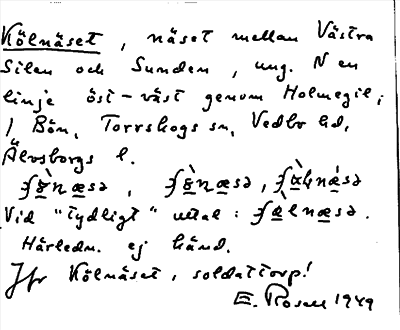 Kölnäset, näset mellan Västra
Silen och Sunden, ung. N en
linje öst – väst genom Holmegil;
i Bön, Torrskogs sn, Vedbo hd,
Älvsborgs l.
Vid "tydligt" uttal:
Härledn. ej känd.
Jfr Kölnäset, soldattorp!
E. Rosell 1949